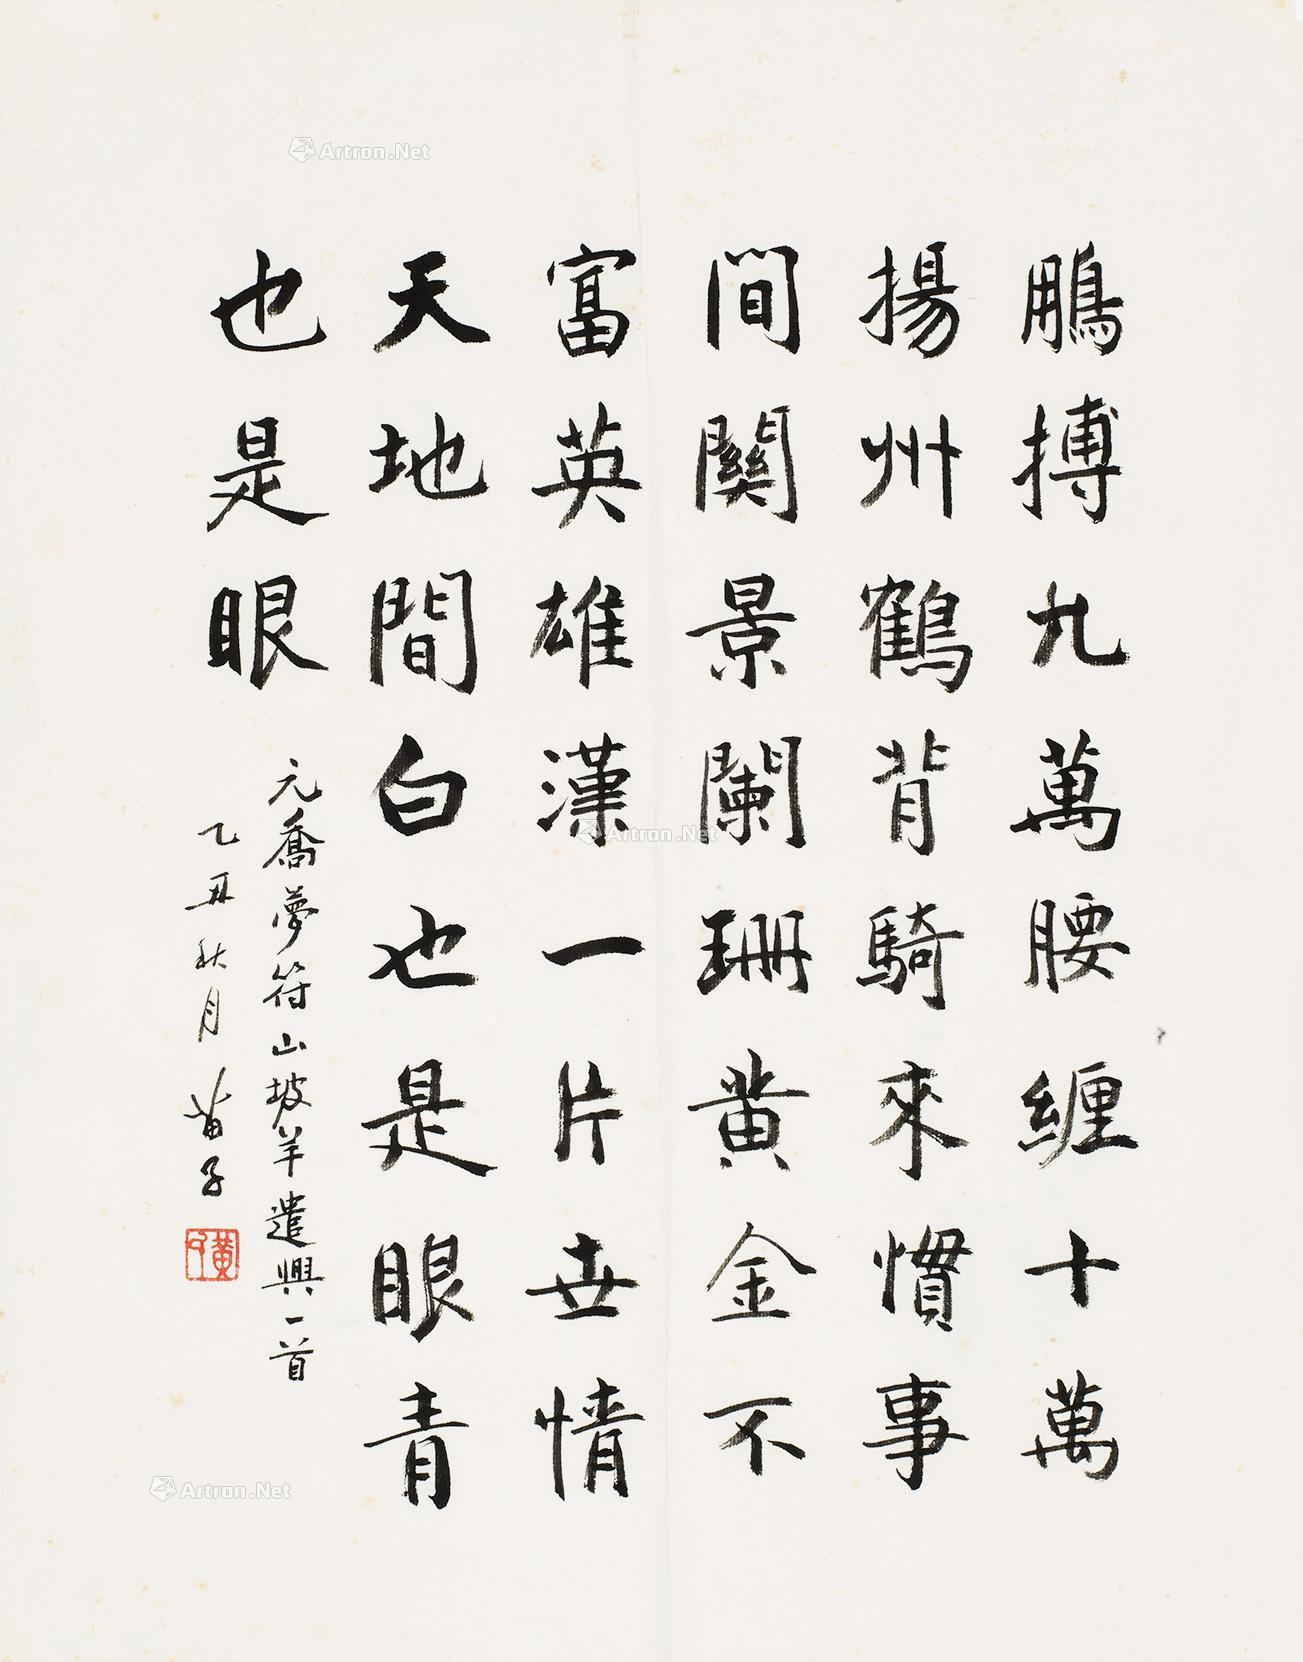 鵬搏九萬腰纏十萬
揚州鶴背騎來慣事
間關景闌珊黃金不
富英雄漢一片世情
天地間白也是眼青
也是眼
元喬夢符山坡羊遣興一首
乙丑秋月 苗子
黃
Artron.Net
Artron.Net
Artron.Net